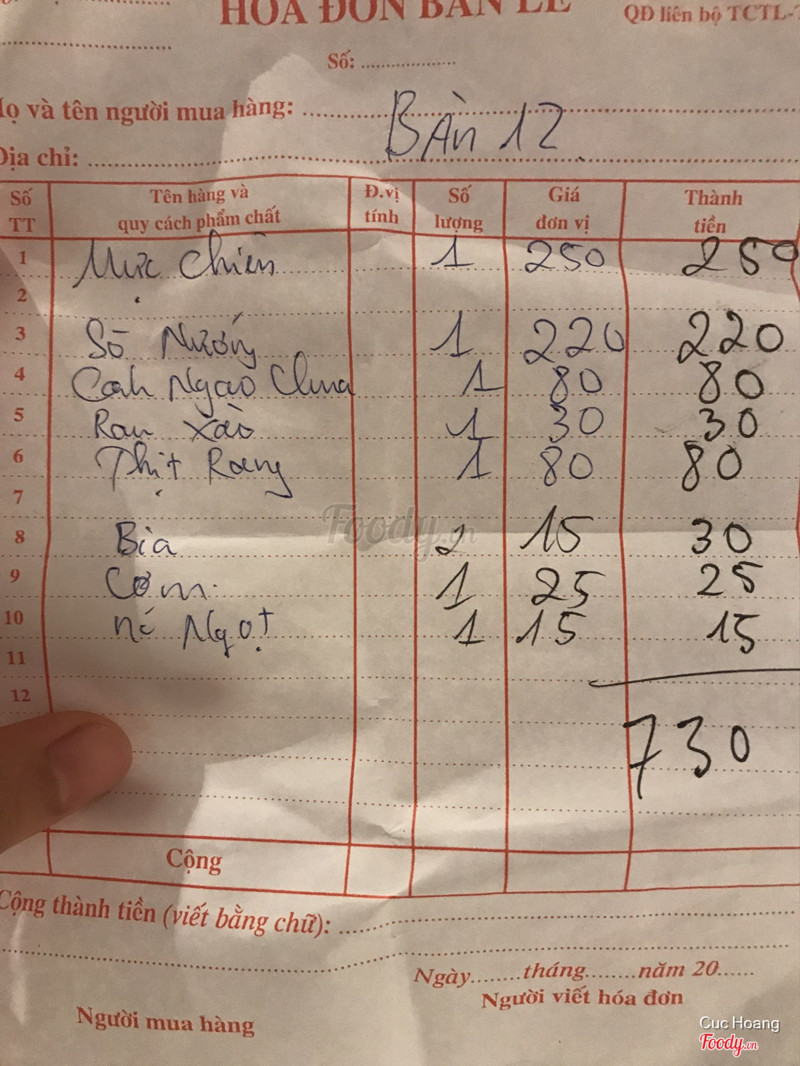 HÓA ĐƠN BÁN LẺ
QĐ liên bộ TCTL-
Số: ....................
Họ và tên người mua hàng: BÀN 12
Địa chỉ:
Số TT Tên hàng và quy cách phẩm chất Đ.vị tính Số lượng Giá đơn vị Thành tiền
1 Mực Chiên 1 250 250
2
3 Sò Nướng 1 220 220
4 Canh Ngao Chua 1 80 80
5 Rau Xào 1 30 30
6 Thịt Rang 1 80 80
7
8 Bia 2 15 30
9 Cơm 1 25 25
10 nc Ngọt 1 15 15
11
12
730
Cộng
Cộng thành tiền (viết bằng chữ):
Ngày........tháng........năm 20......
Người viết hóa đơn
Người mua hàng
Foody.vn
Cuc Hoang
Foody.vn